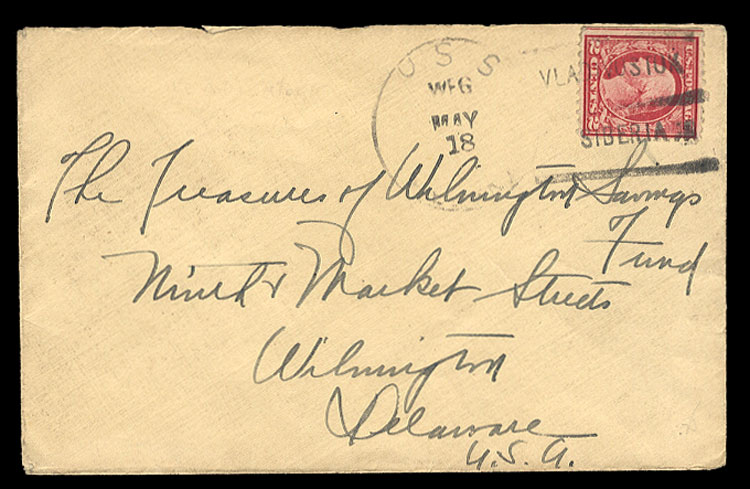 U S S
W-6
MAY
18
VLADIVOSTOK
SIBERIA
U.S. POSTAGE
2 CENTS 2
The Treasurer of Wilmington Savings
Fund
Ninth & Market Streets
Wilmington
Delaware
U.S.A.